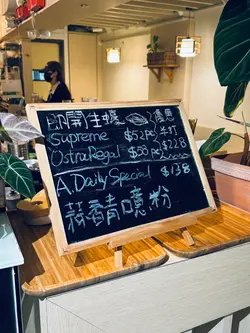 即開生蠔 優惠
Supreme $52pc 半打
Ostra Regal $58pc $228
A. Daily Special $138
蒜香蜻噴粉